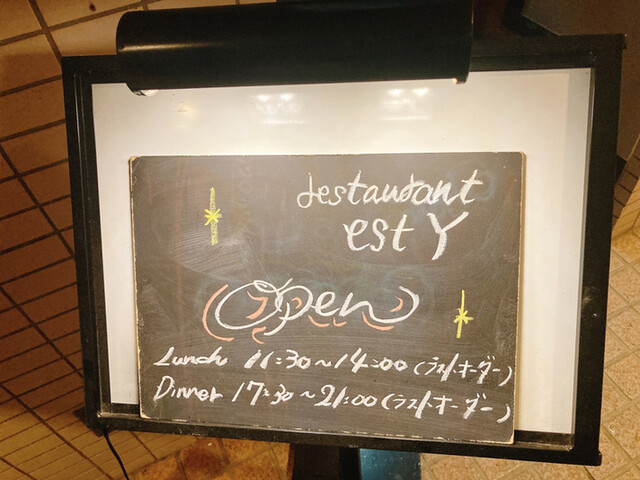 restaurant
est Y
Open
Lunch 11:30～14:00(ラストオーダー)
Dinner 17:30～21:00(ラストオーダー)